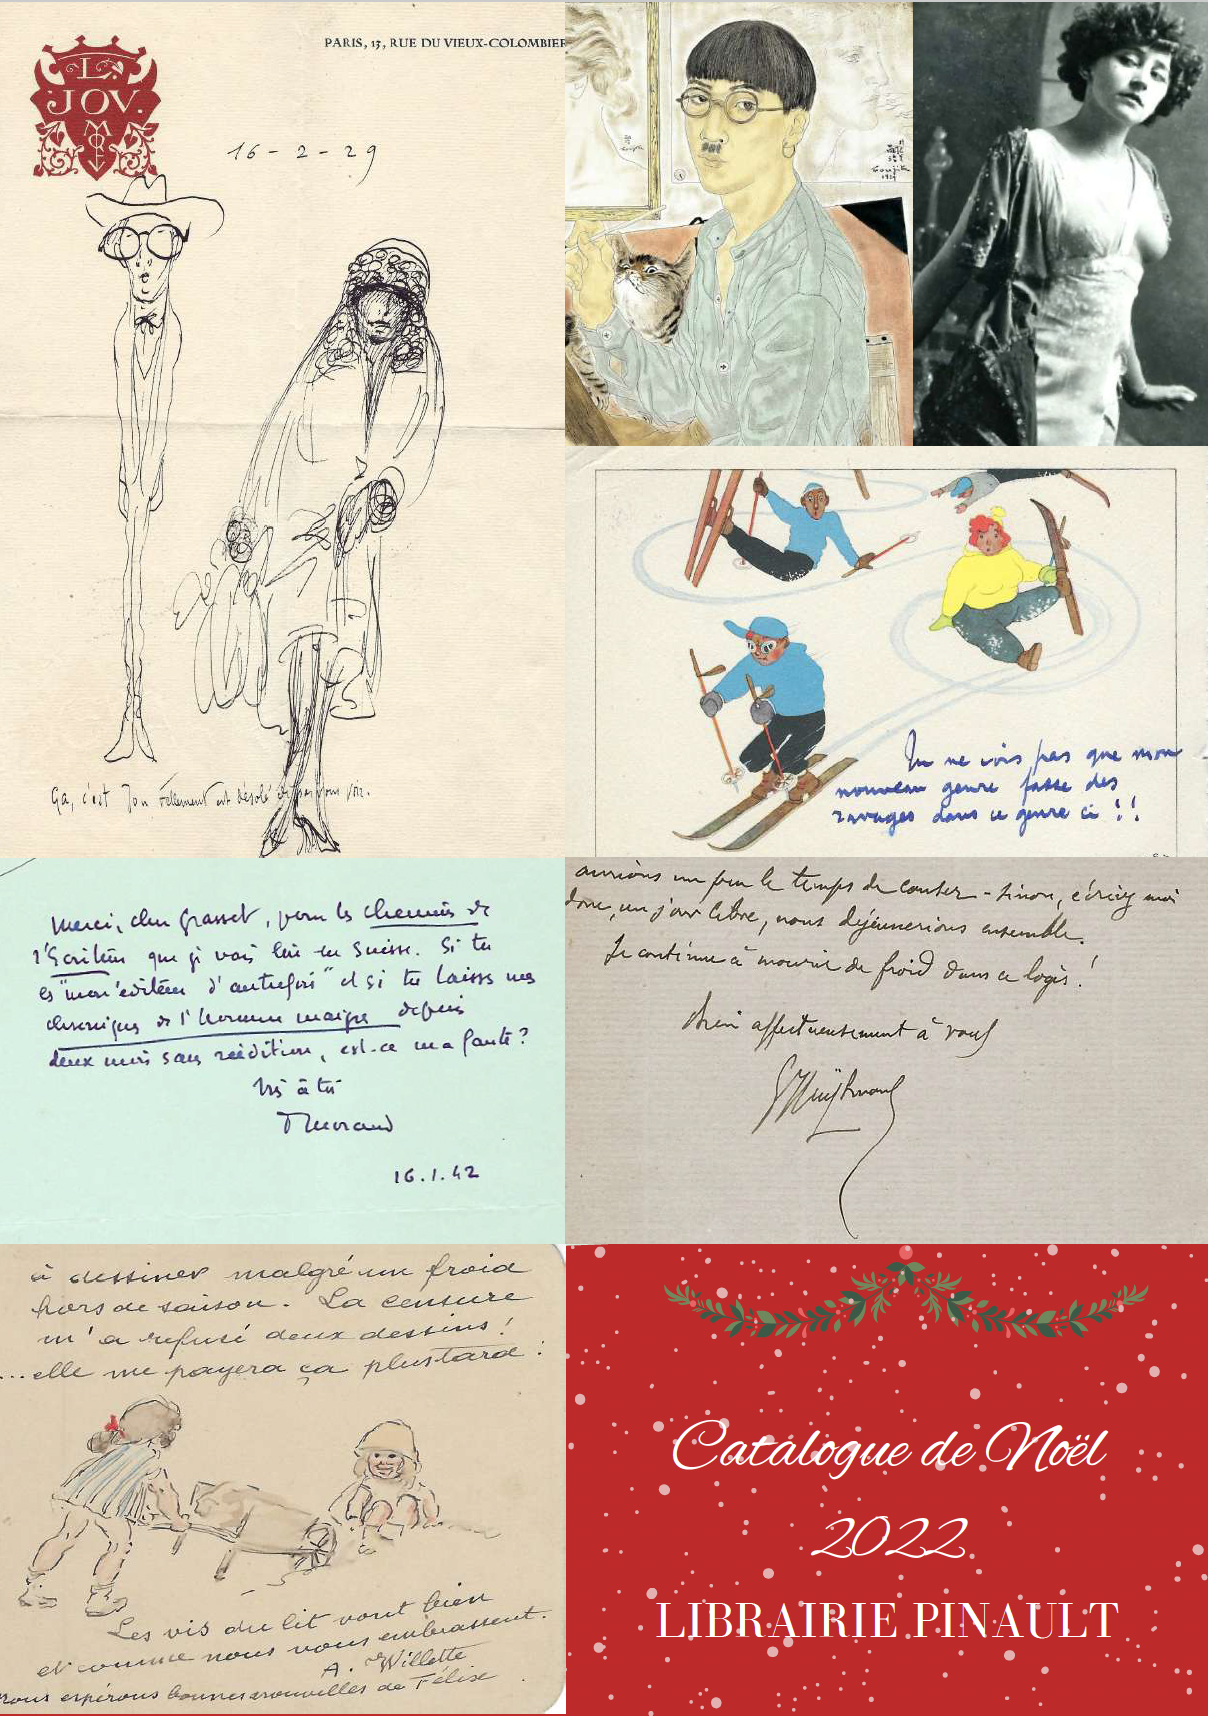 LA
JOV.
PARIS, 13, RUE DU VIEUX-COLOMBIER
16-2-29
Ça, c'est Jou tellement est désolé
Foujita
Tu ne vois pas que mon
nouveau genre fasse des
ravages dans ce genre ci !!
Merci, cher Grasset, pour les chemins de
l'Écriture que je vais lire en Suisse. Si tu
es "mon éditeur d'autrefois" et si tu laisses mes
chroniques de l'homme maigre depuis
deux mois sans réédition, est-ce ma faute ?
Morand
16.1.42
aurions un peu le temps de causer - sinon, écrivez moi
donc, un jour libre, nous déjeunerions ensemble.
Je continue à mourir de froid dans ce logis !
Bien affectueusement à vous
GHuysmans
à dessiner malgré un froid
hors de saison. La censure
m'a refusé deux dessins !
...elle me payera ça plus tard.
Les vis du lit vont bien
et comme nous vous embrassent.
A. Willette
nous espérons bonnes nouvelles de Félise
Catalogue de Noël
2022
LIBRAIRIE PINAULT